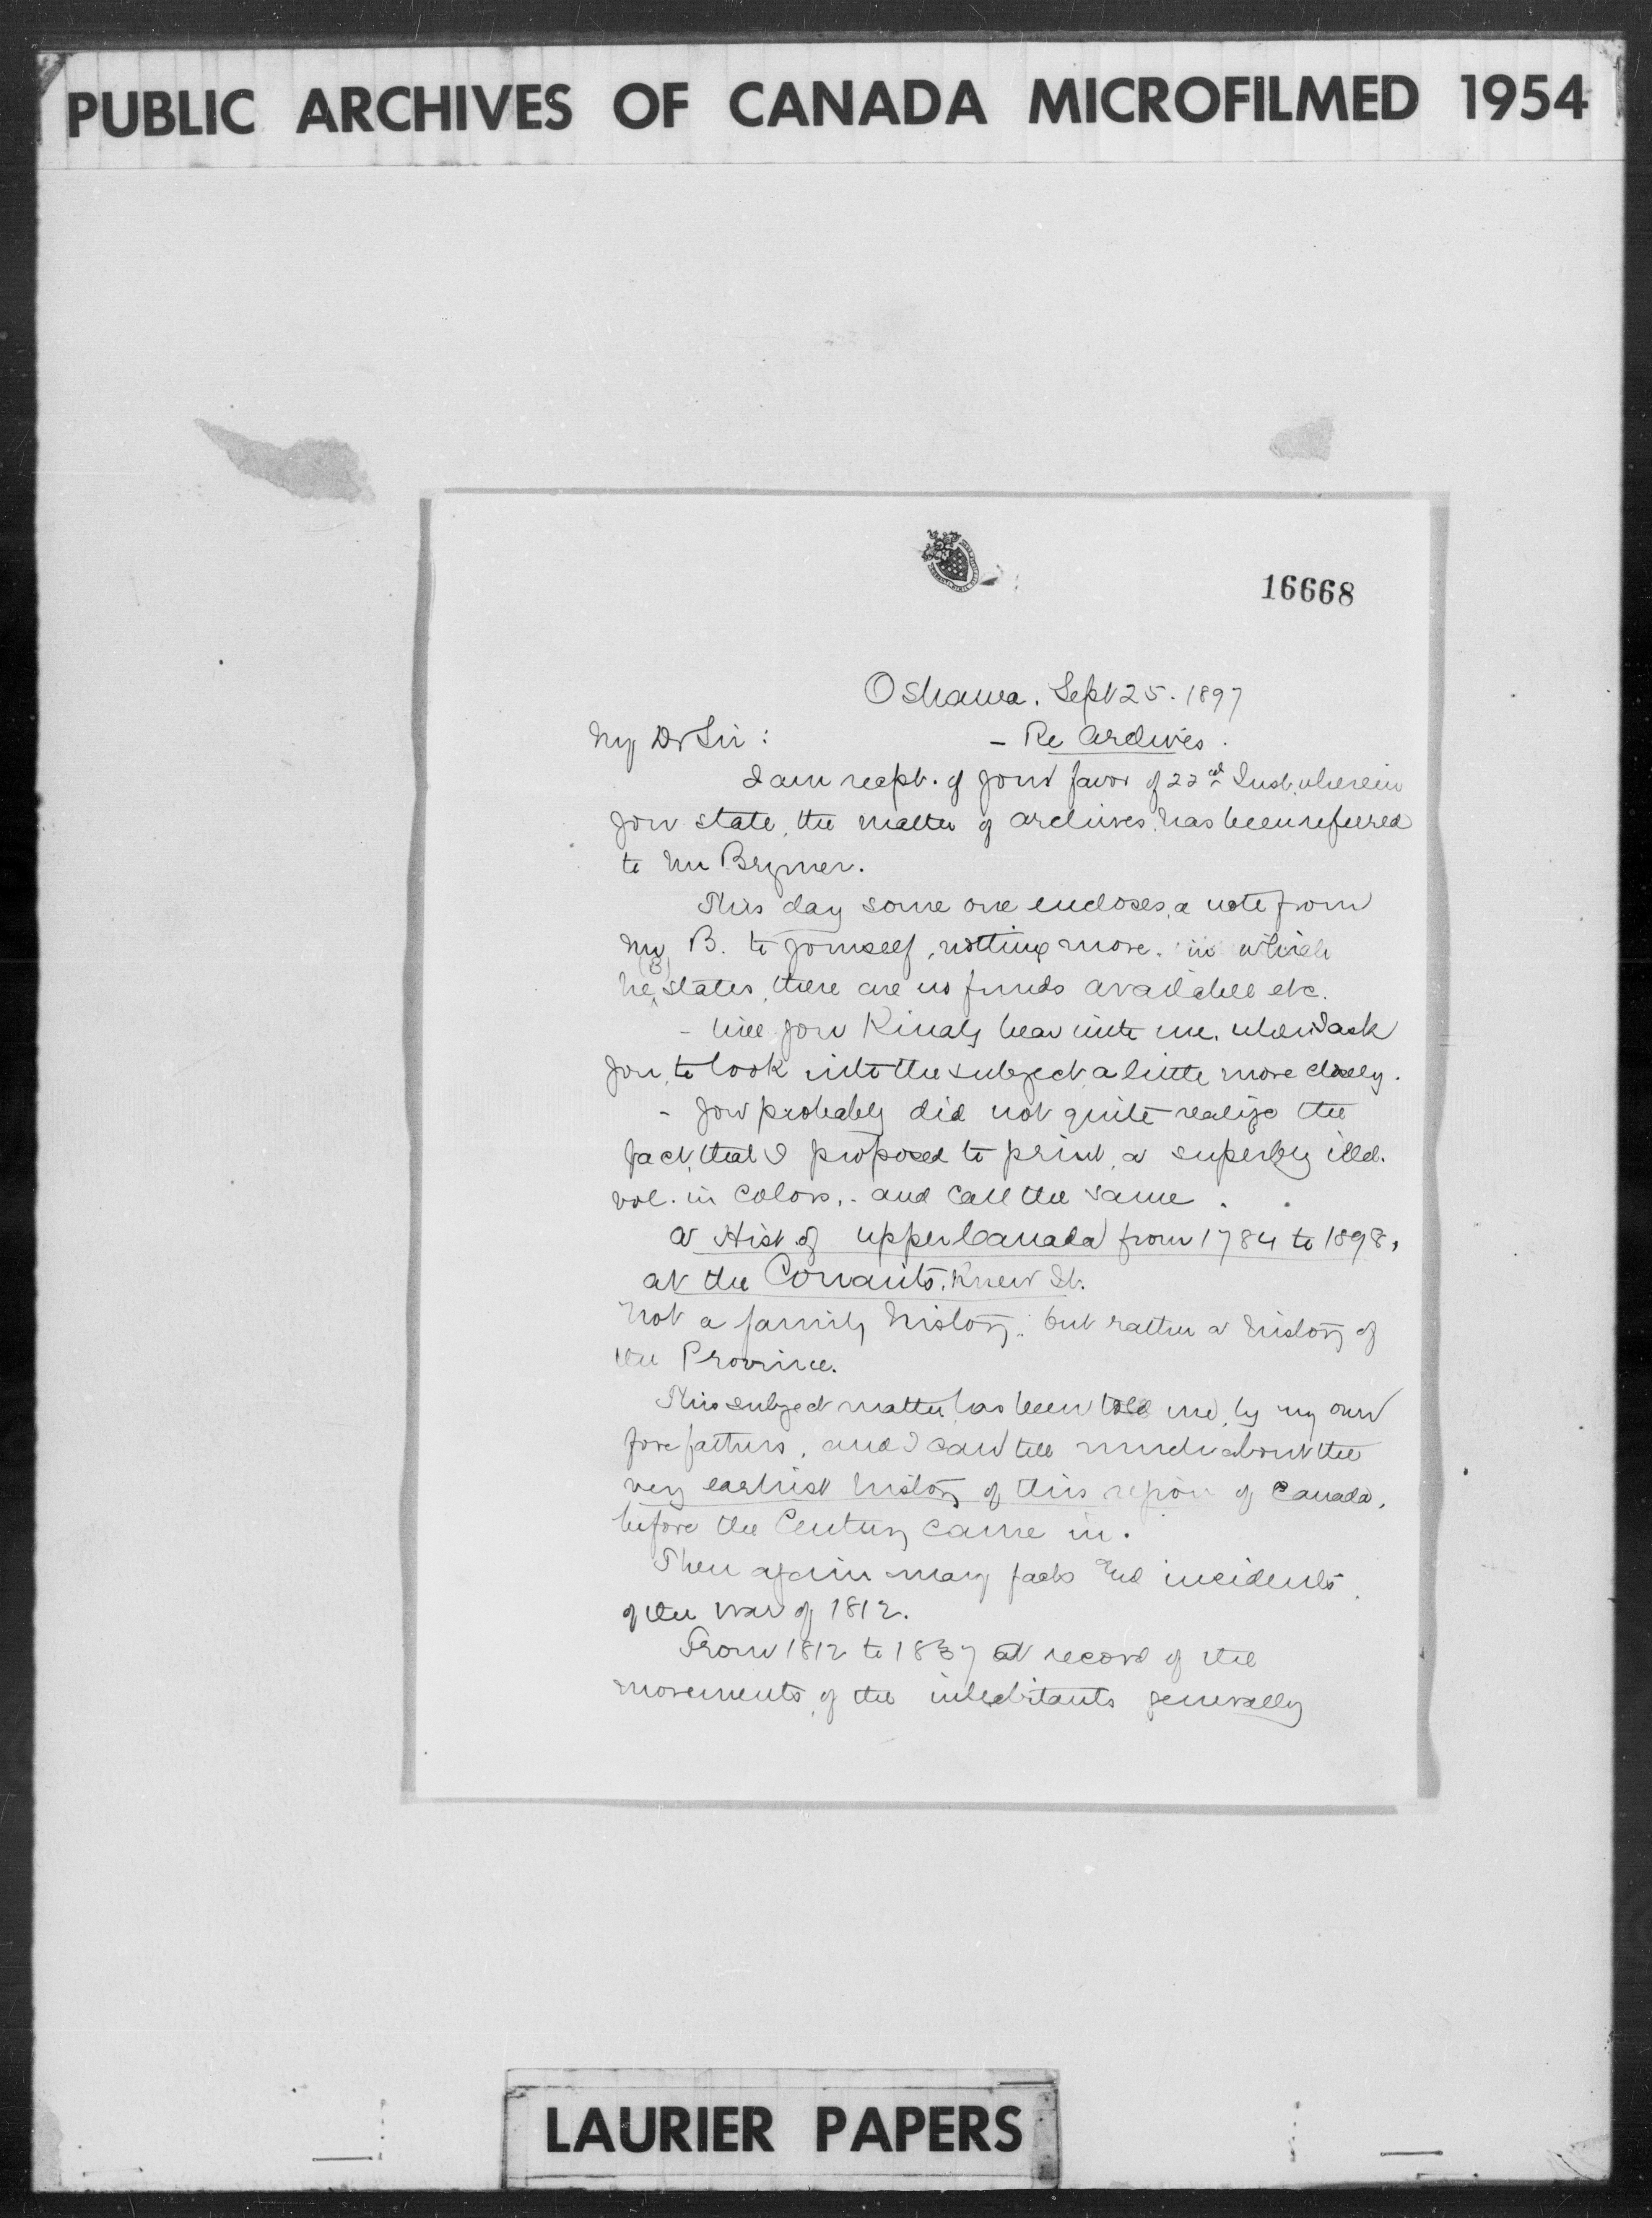 PUBLIC ARCHIVES OF CANADA MICROFILMED 1954
16668
Oshawa. Sept 25. 1897
My Dr Sir :
- Re Archives.
I am recpt. of your favor of 22nd Inst. wherein
you state, the matter of archives, has been referred
to Mr Brymer.
This day some one encloses, a note from
Mr B. to yourself, nothing more. in which
he (B) states, there are no funds available etc.
- Will you kindly bear with me. when I ask
you, to look into the subject a little more closely.
- You probably did not quite realize the
fact, that I proposed to print, a superbly illd.
vol. in colors, - and call the same .
A Hist of upper Canada from 1784 to 1898,
as the Conants, knew It.
Not a family history; but rather a history of
the Province.
This subject matter has been told me, by my own
forefathers, and I can tell much about the
very earliest history of this region of Canada,
before the Century came in.
Then again many facts and incidents
of the war of 1812.
From 1812 to 1837 a record of the
movements, of the inhabitants generally
LAURIER PAPERS